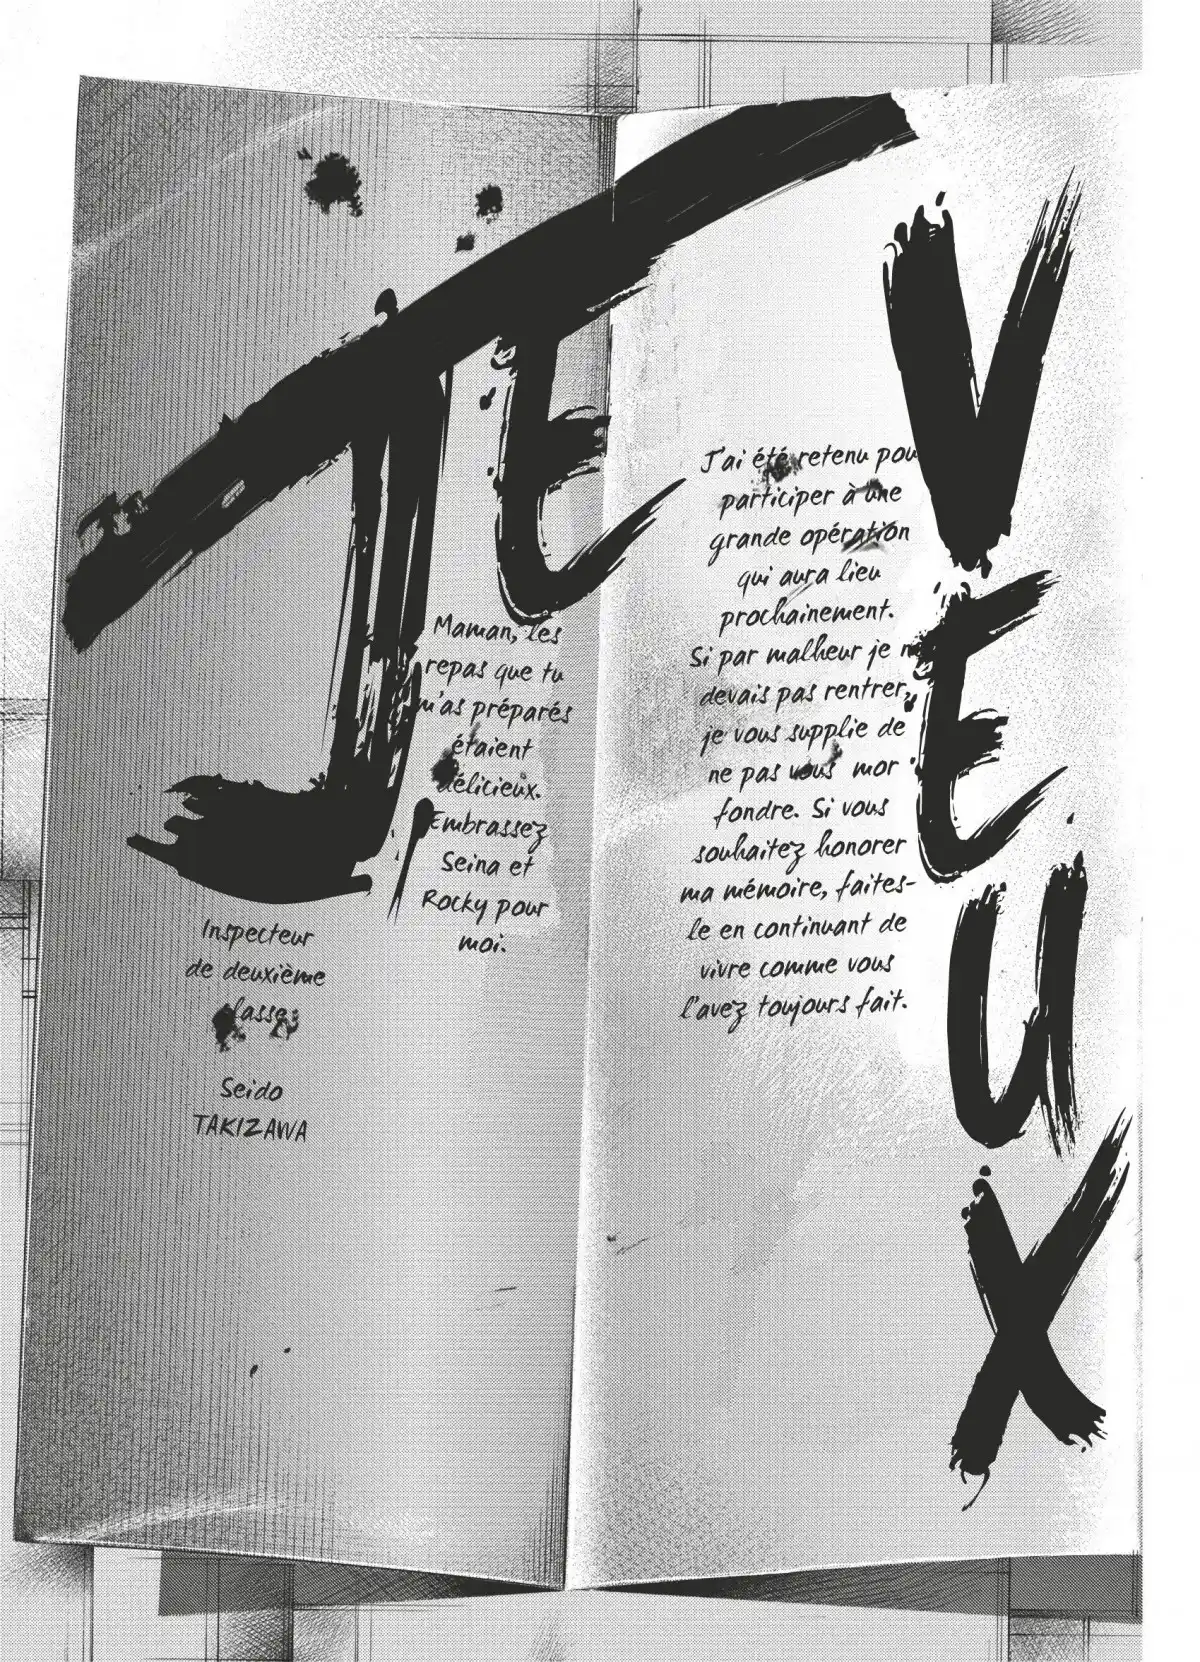 JE
VEUX
J'ai été retenu pou
participer à une
grande opération
qui aura lieu
prochainement.
Si par malheur je n
devais pas rentrer,
je vous supplie de
ne pas vous mor
fondre. Si vous
souhaitez honorer
ma mémoire, faites-
le en continuant de
vivre comme vous
l'avez toujours fait.
Maman, les
repas que tu
m'as préparés
étaient
délicieux.
Embrassez
Seina et
Rocky pour
moi.
Inspecteur
de deuxième
classe
Seido
TAKIZAWA